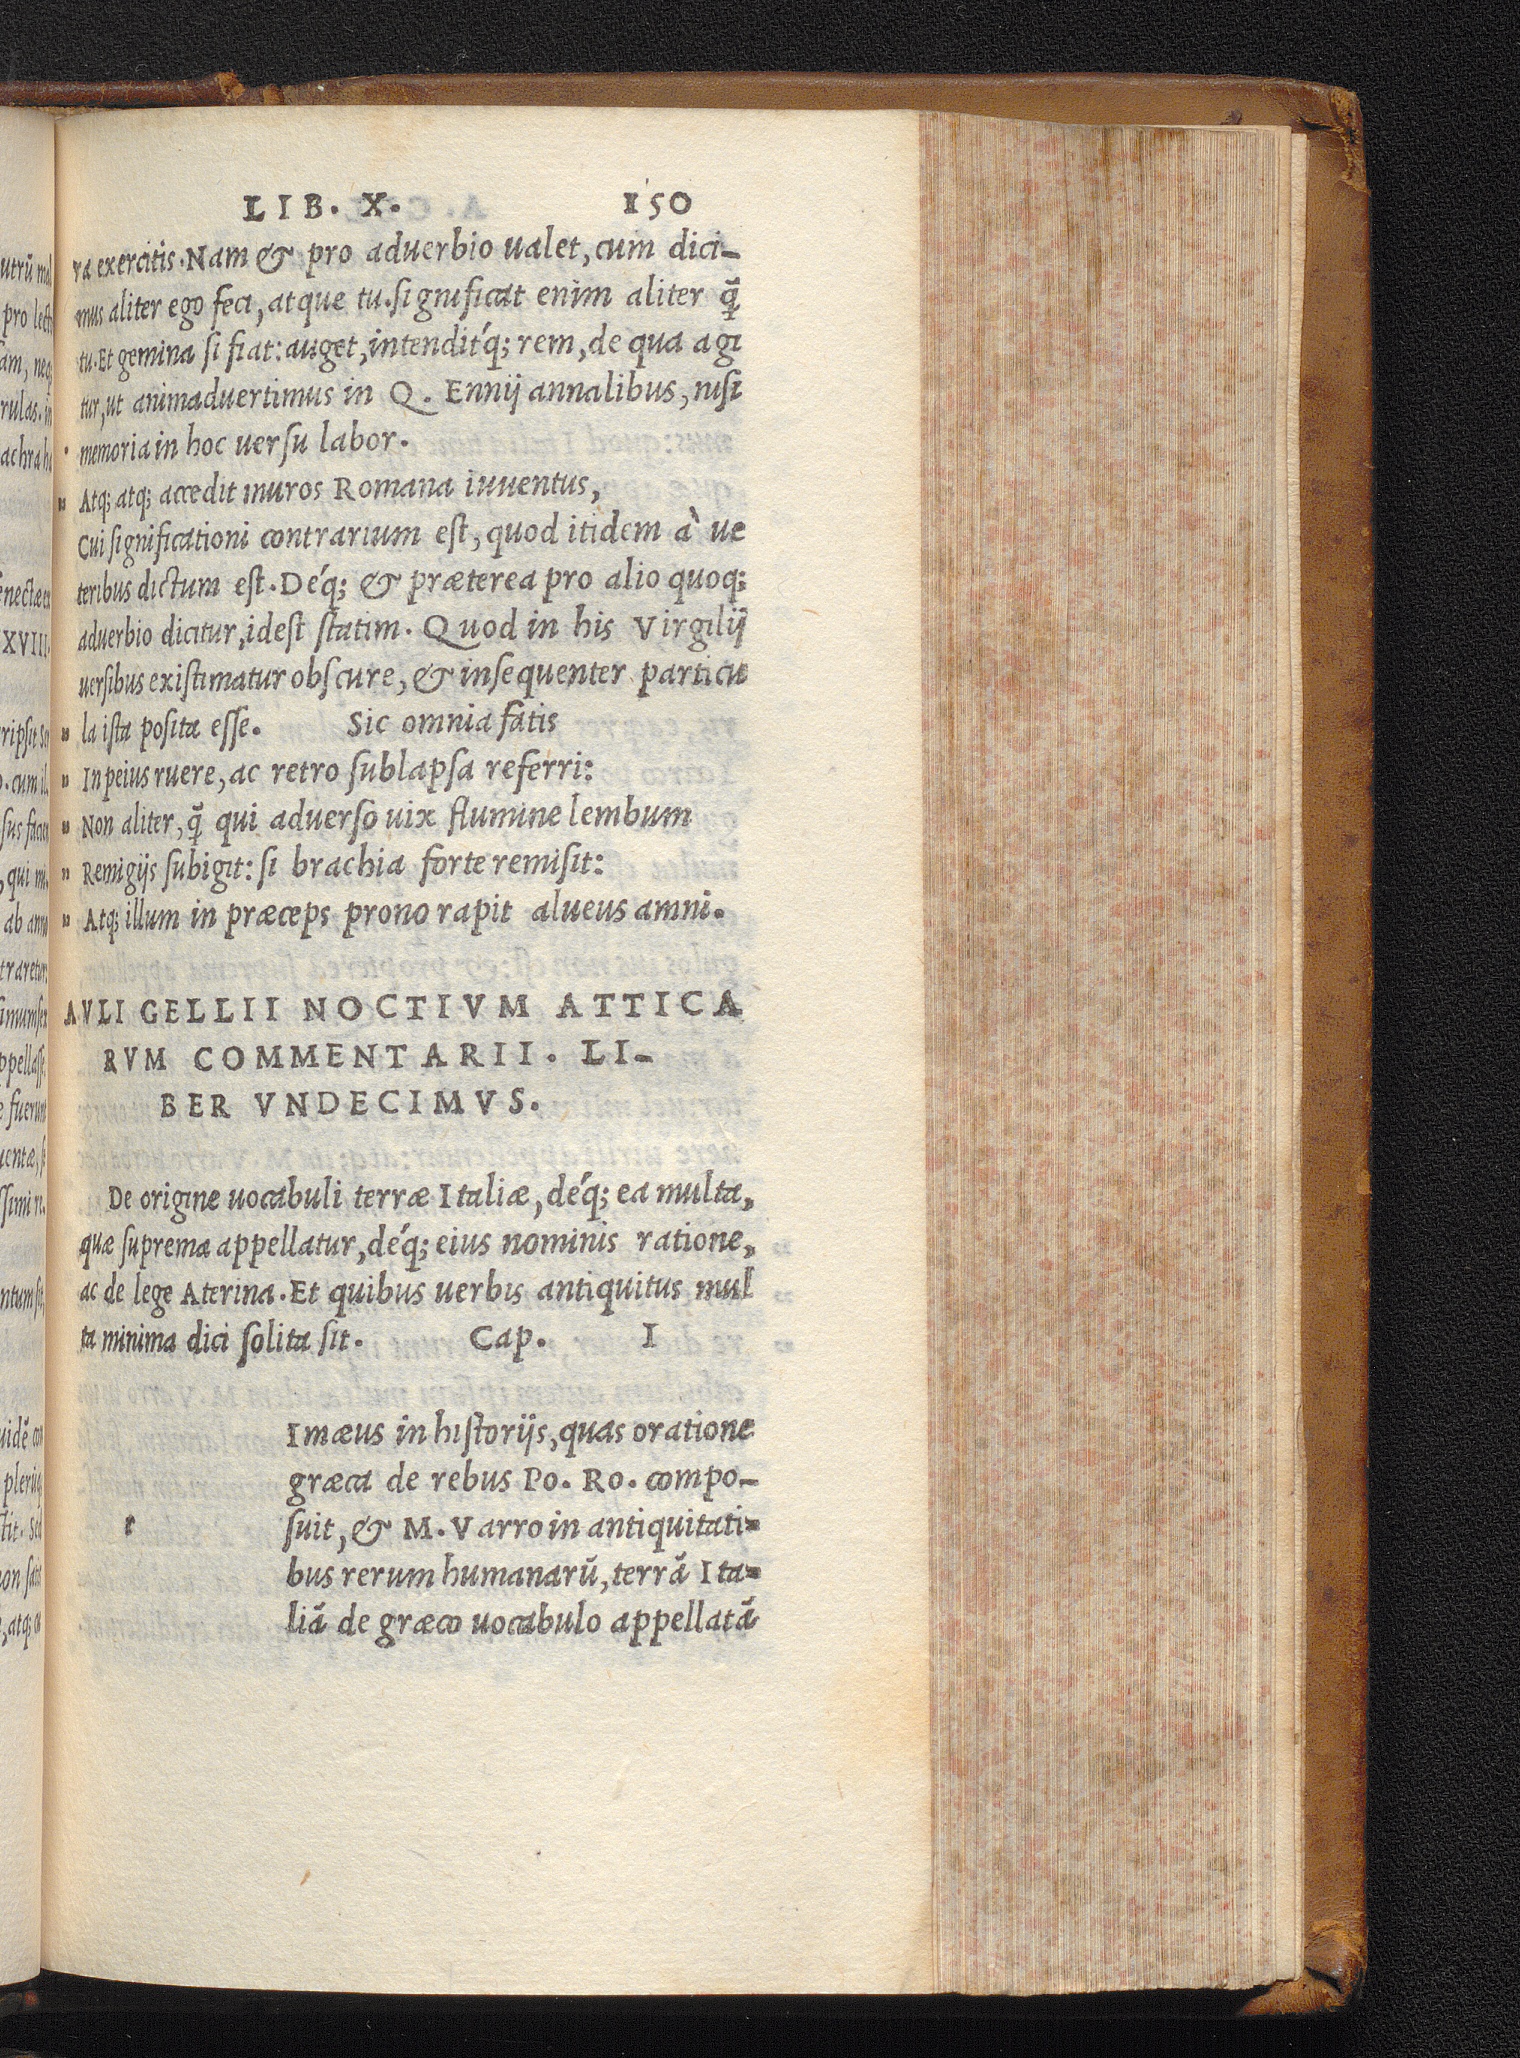 LIB. X. 150
ra exercitis. Nam & pro aduerbio ualet, cum dici-
mus aliter ego feci, atque tu. significat enim aliter q̃
tu. Et gemina si fiat: auget, intenditq́; rem, de qua agi
tur, ut animaduertimus in Q. Ennij annalibus, nisi
memoria in hoc uersu labor.
" Atq; atq; accedit muros Romana iuuentus,
Cui significationi contrarium est, quod itidem à ue
teribus dictum est. Déq; & præterea pro alio quoq;
aduerbio dicitur, idest statim. Quod in his Virgilij
uersibus existimatur obscure, & insequenter particu
" la ista posita esse. Sic omnia fatis
" In peius ruere, ac retro sublapsa referri:
" Non aliter, q̃ qui aduerso uix flumine lembum
" Remigijs subigit: si brachia forte remisit:
" Atq; illum in præceps prono rapit alueus amni.
AVLI GELLII NOCTIVM ATTICA
RVM COMMENTARII. LI-
BER VNDECIMVS.
De origine uocabuli terræ Italiæ, déq; ea multa,
quæ suprema appellatur, déq; eius nominis ratione,
ac de lege Aterina. Et quibus uerbis antiquitus mul
ta minima dici solita sit. Cap. I
Imæus in historijs, quas oratione
græca de rebus Po. Ro. compo-
t suit, & M. Varro in antiquitati-
bus rerum humanarũ, terrã Ita-
liã de græco uocabulo appellatã